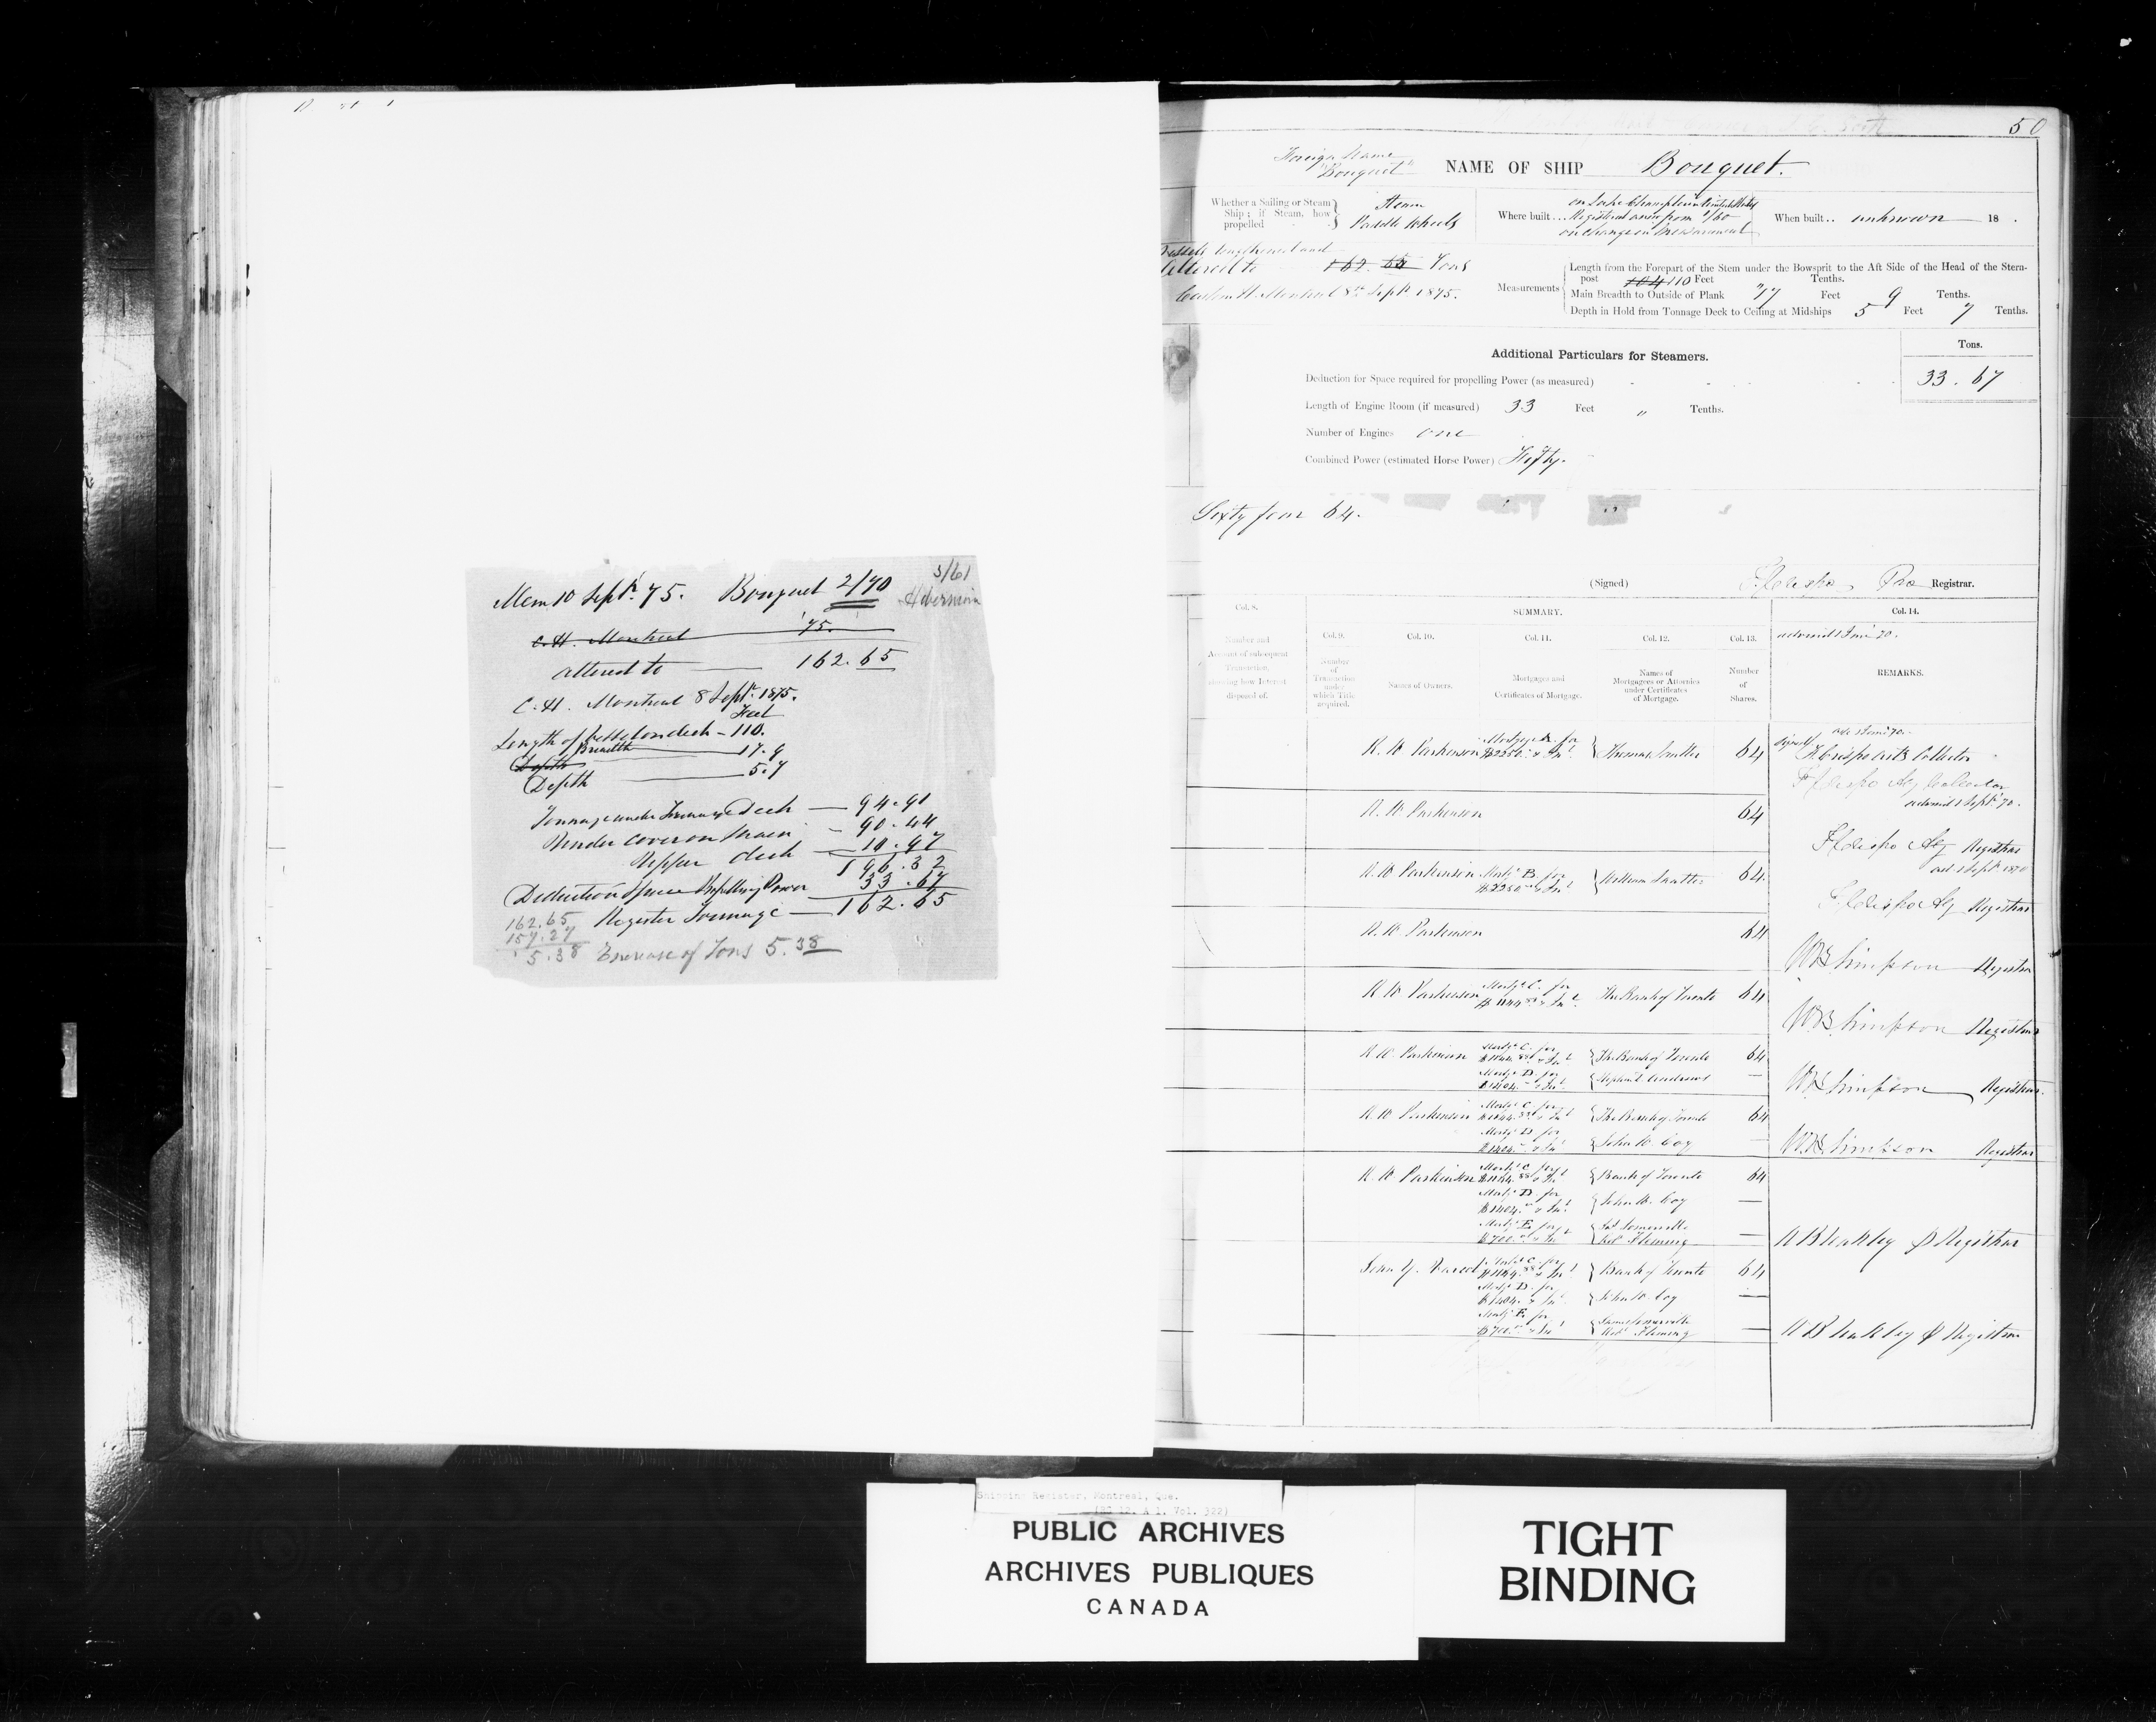 Mem 10 Sept. 75. Bouquet 2/70
3/61
Hibernia
C. H. Montreal 75.
altered to 162.65
C. H. Montreal 8 Sept. 1875.
Feet
Length of Vessel on deck - 110.
Breadth 17.9
Depth
Depth 5.7
Tonnage under Tonnage Deck 94.91
Under cover on Main 90.44
Upper deck 10.97
196.32
Deduction Space Propelling Power 33.67
Register Tonnage 162.65
162.65
157.27
5.38 Increase of Tons 5.38
50
Foreign Name
"Bouquet"
NAME OF SHIP Bouquet.
Whether a Sailing or Steam
Ship; if Steam, how
propelled
Steam
Paddle Wheels
Where built... on Lake Champlain United States
Registered anew from 1/60
on change in Measurement
When built.. unknown 18 .
Vessel lengthened and
altered to 162.65 Tons
Custom H. Montreal 8th Sept. 1875.
Measurements
Length from the Forepart of the Stem under the Bowsprit to the Aft Side of the Head of the Stern-
post 104 110 Feet Tenths.
Main Breadth to Outside of Plank 17 Feet 9 Tenths.
Depth in Hold from Tonnage Deck to Ceiling at Midships 5 Feet 7 Tenths.
Additional Particulars for Steamers.
Tons.
Deduction for Space required for propelling Power (as measured) 33.67
Length of Engine Room (if measured) 33 Feet " Tenths.
Number of Engines one
Combined Power (estimated Horse Power) Fifty.
Sixty four 64.
(Signed) Registrar.
Col. 8.
Number and
Account of subsequent
Transaction,
showing how Interest
disposed of.
SUMMARY.
Col. 9.
Number
of
Transaction
under
which Title
acquired.
Col. 10.
Names of Owners.
Col. 11.
Mortgages and
Certificates of Mortgage.
Col. 12.
Names of
Mortgagees or Attornies
under Certificates
of Mortgage.
Col. 13.
Number
of
Shares.
Col. 14.
REMARKS.
R. W. Parkinson Mortge A. for 64
R. W. Parkinson 64
R. W. Parkinson Mortge B. for William 64
R. W. Parkinson 64
W B Simpson Registrar
R. W. Parkinson Mortge C. for The Bank of Toronto 64
W B Simpson Registrar
R. W. Parkinson Mortge C. for The Bank of Toronto 64
Mortge D. for
W B Simpson Registrar
R. W. Parkinson Mortge C. for The Bank of Toronto 64
Mortge D. for John W. Coy
W B Simpson Registrar
R. W. Parkinson Mortge C. for Bank of Toronto 64
Mortge D. for John W. Coy
Mortge E. for Jas Somerville
Robt Fleming
Registrar
Mortge C. for Bank of Toronto 64
Mortge D. for John W. Coy
Mortge E. for James Somerville
Robt Fleming
Registrar
Shipping Register, Montreal, Que.
(RG 12, A 1, Vol. 322)
PUBLIC ARCHIVES
ARCHIVES PUBLIQUES
CANADA
TIGHT
BINDING